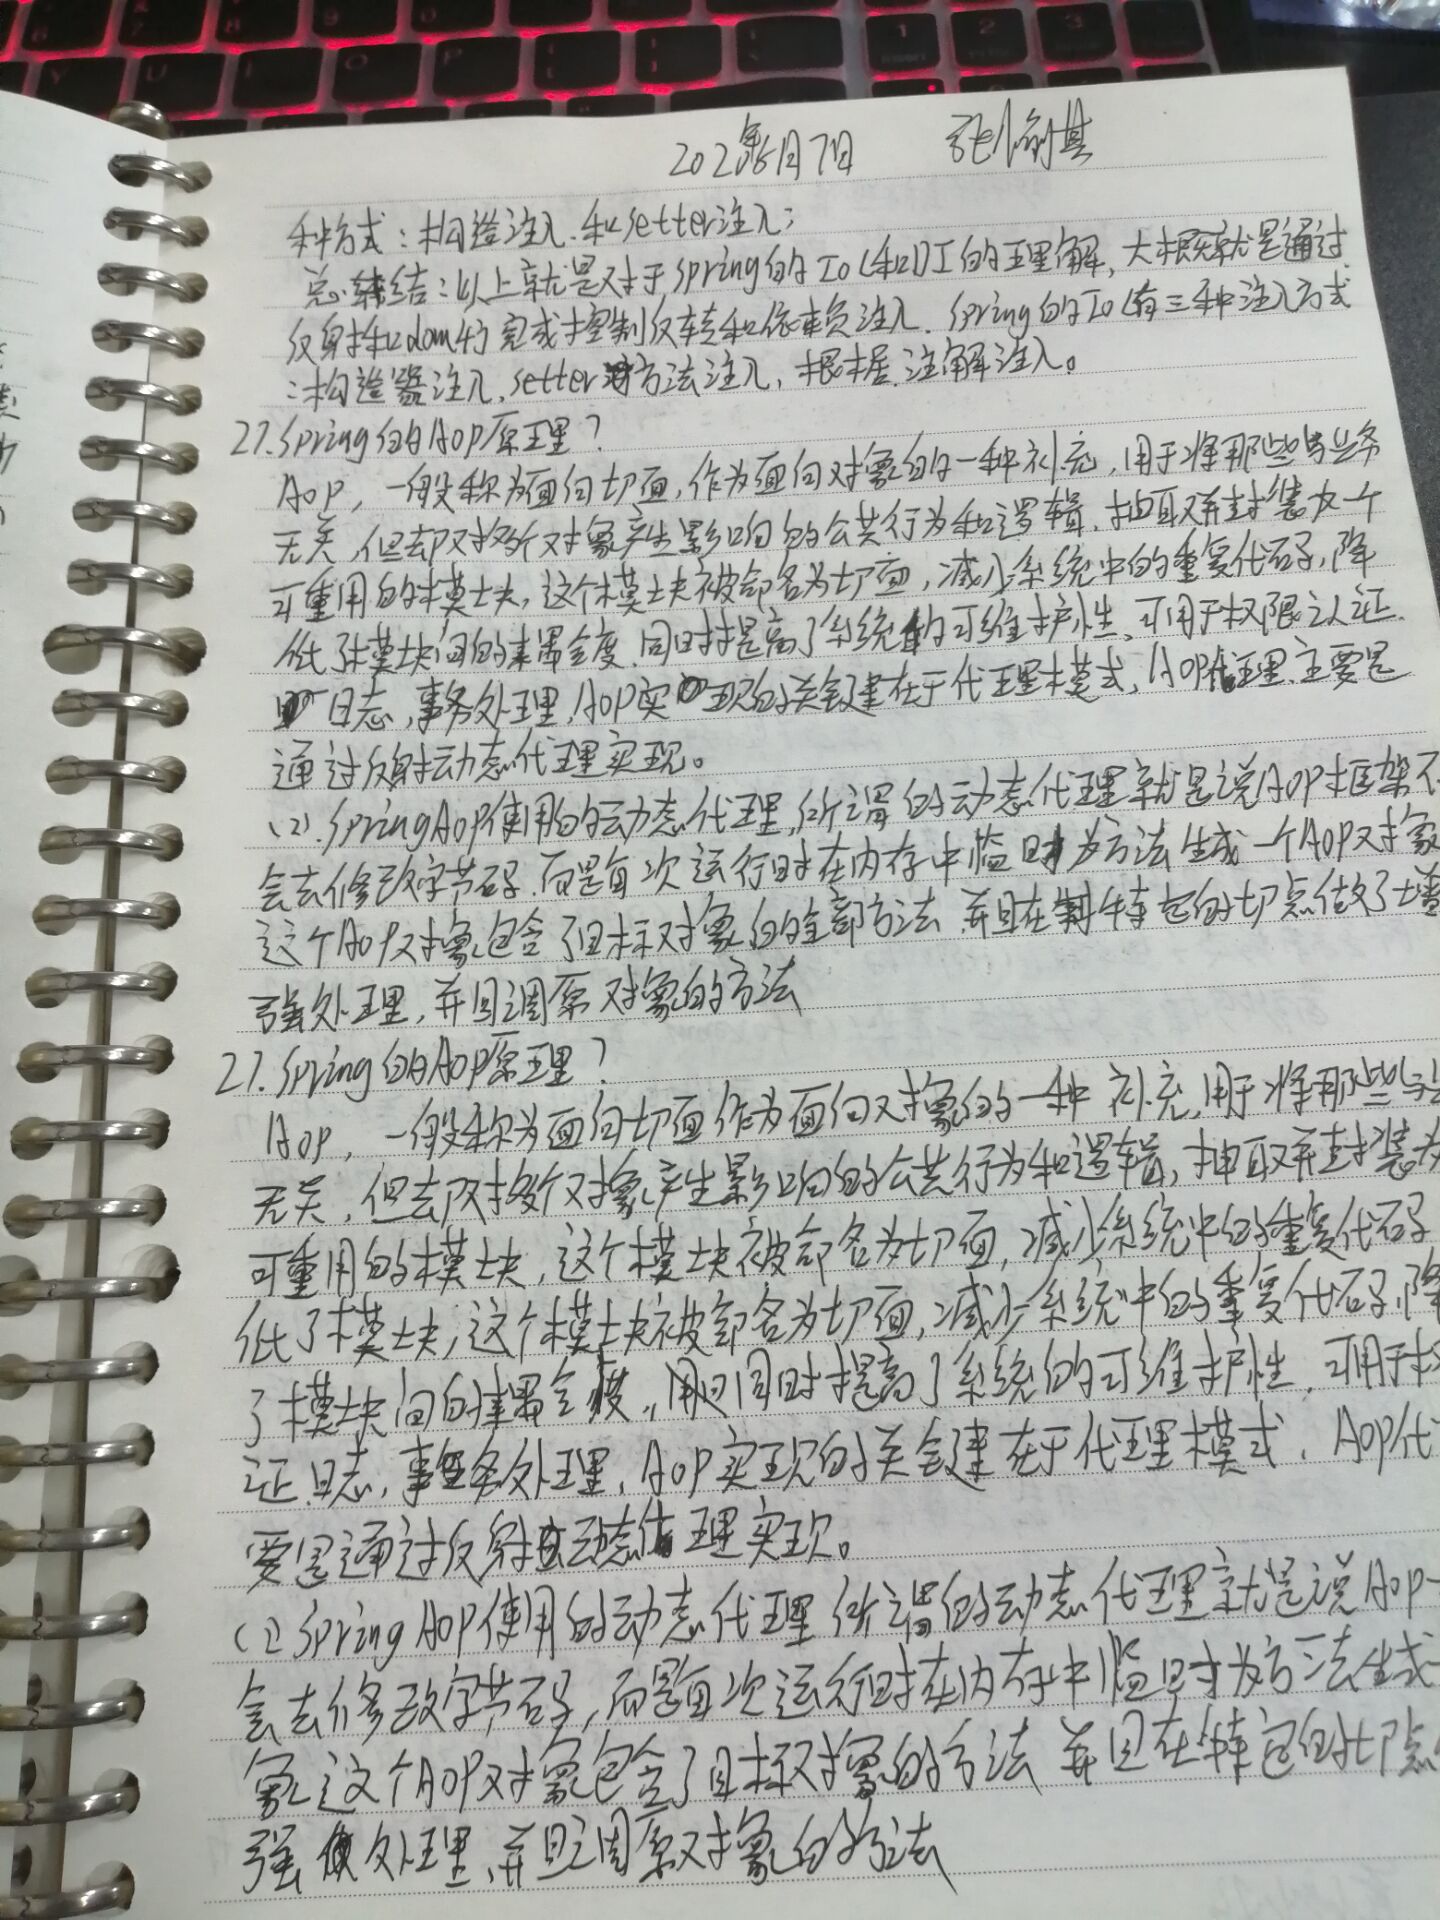 202年6月7日
种方式：构造注入和setter注入；
总结：以上就是对于Spring的IoC和DI的理解，大概就是通过
反射和dom4j完成控制反转和依赖注入. Spring的IoC有三种注入方式
：构造器注入，setter方法注入，根据注解注入。
27.Spring的AOP原理？
AOP，一般称为面向切面，作为面向对象的一种补充，用于将那些与业务
无关，但却对多个对象产生影响的公共行为和逻辑，抽取并封装为一个
可重用的模块，这个模块被命名为切面，减少系统中的重复代码，降
低了模块间的耦合度，同时提高了系统的可维护性，可用于权限认证.
日志，事务处理，AOP实现的关键在于代理模式，AOP代理主要是
通过反射动态代理实现。
(2).SpringAOP使用的动态代理，所谓的动态代理就是说AOP框架不
会去修改字节码，而是每次运行时在内存中临时为方法生成一个AOP对象
这个AOP对象包含了目标对象的全部方法，并且在特定的切点做了增
强处理，并回调原对象的方法
27.Spring的AOP原理？
AOP，一般称为面向切面作为面向对象的一种补充，用于将那些与
无关，但却对多个对象产生影响的公共行为和逻辑，抽取并封装为
可重用的模块，这个模块被命名为切面，减少系统中的重复代码
低了模块，这个模块被命名为切面，减少系统中的重复代码，降
了模块间的耦合度，同时提高了系统的可维护性，可用于权
证.日志，事务处理，AOP实现的关键在于代理模式，AOP代
要是通过反射动态代理实现。
(2)Spring AOP使用的动态代理 所谓的动态代理就是说AOP
会去修改字节码，而是每次运行时在内存中临时为方法生成一
象，这个AOP对象包含了目标对象的方法 并且在特定的切点
强处理，并且调原对象的方法